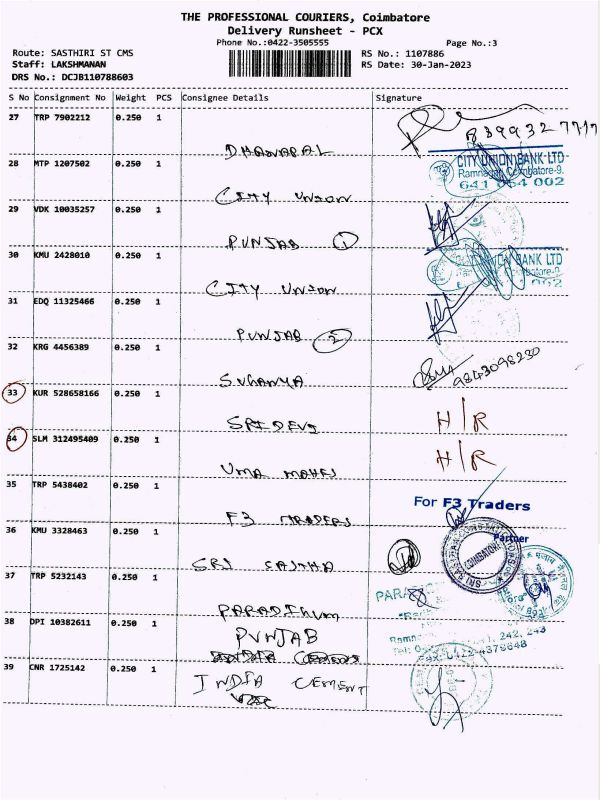 THE PROFESSIONAL COURIERS, Coimbatore
Delivery Runsheet - PCX
Phone No.:0422-3505555 Page No.:3
Route: SASTHIRI ST CMS RS No.: 1107886
Staff: LAKSHMANAN RS Date: 30-Jan-2023
DRS No.: DCJB110788603
S No Consignment No Weight PCS Consignee Details Signature
27 TRP 7902212 0.250 1
DHANAPAL
28 MTP 1207502 0.250 1
CITY UNION BANK LTD
Ramnagar, Coimbatore-9.
641 054 002
CITY UNION
29 VDK 10035257 0.250 1
PUNJAB 1
30 KMU 2428010 0.250 1
BANK LTD
CITY UNION
31 EDQ 11325466 0.250 1
PUNJAB 2
32 KRG 4456389 0.250 1
SUKANYA 9843098230
33 KUR 528658166 0.250 1
SRIDEVI H/R
34 SLM 312495409 0.250 1
UMA MAHES H/R
35 TRP 5438402 0.250 1
For F3 Traders
F3 TRADERS
36 KMU 3328463 0.250 1
Partner
COIMBATORE
SRI SASTHA
37 TRP 5232143 0.250 1
PARADIHUM
38 DPI 10382611 0.250 1
PUNJAB
242, 243
39 CNR 1725142 0.250 1
INDIA CEMENT